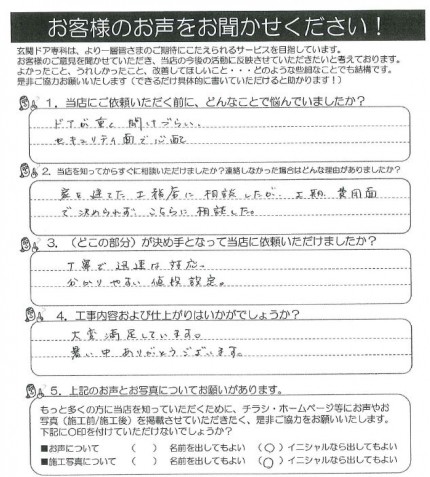 お客様のお声をお聞かせください！
玄関ドア専科は、より一層皆さまのご期待にこたえられるサービスを目指しています。
お客様のご意見を聞かせていただき、当店の今後の活動に反映させていただきたいと考えております。
よかったこと、うれしかったこと、改善してほしいこと・・・どのような些細なことでも結構です。
是非ご協力お願いいたします（できるだけ具体的に書いていただけると助かります！）
1．当店にご依頼いただく前に、どんなことで悩んでいましたか？
ドアが重く 開けづらい。
セキュリティ面で心配
2．当店を知ってからすぐに相談いただけましたか？連絡しなかった場合はどんな理由がありましたか？
家を建てた工務店に相談したが、工期、費用面
で決められず、こちらに相談した。
3．（どこの部分）が決め手となって当店に依頼いただけましたか？
丁寧で迅速な対応。
分かりやすい価格設定。
4．工事内容および仕上がりはいかがでしょうか？
大変満足しています。
暑い中ありがとうございます。
5．上記のお声とお写真についてお願いがあります。
もっと多くの方に当店を知っていただくために、チラシ・ホームページ等にお声やお
写真（施工前/施工後）を掲載させていただきたく、是非ご協力をお願いいたします。
下記に〇印を付けていただけないでしょうか？
■お声について （ ） 名前を出してもよい （〇）イニシャルなら出してもよい
■施工写真について （ ） 名前を出してもよい （〇）イニシャルなら出してもよい